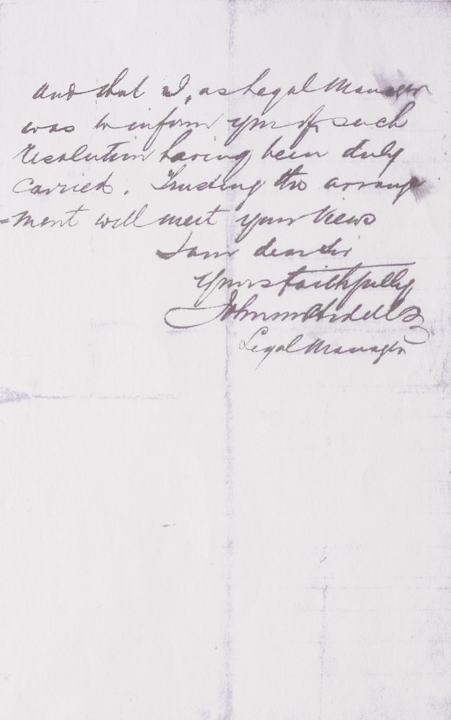 And that I, as Legal Manager
was to inform you of such
resolution having been duly
carried. Trusting this arrange
-ment will meet your views
I am dear Sir
Yours faithfully
John
Legal Manager